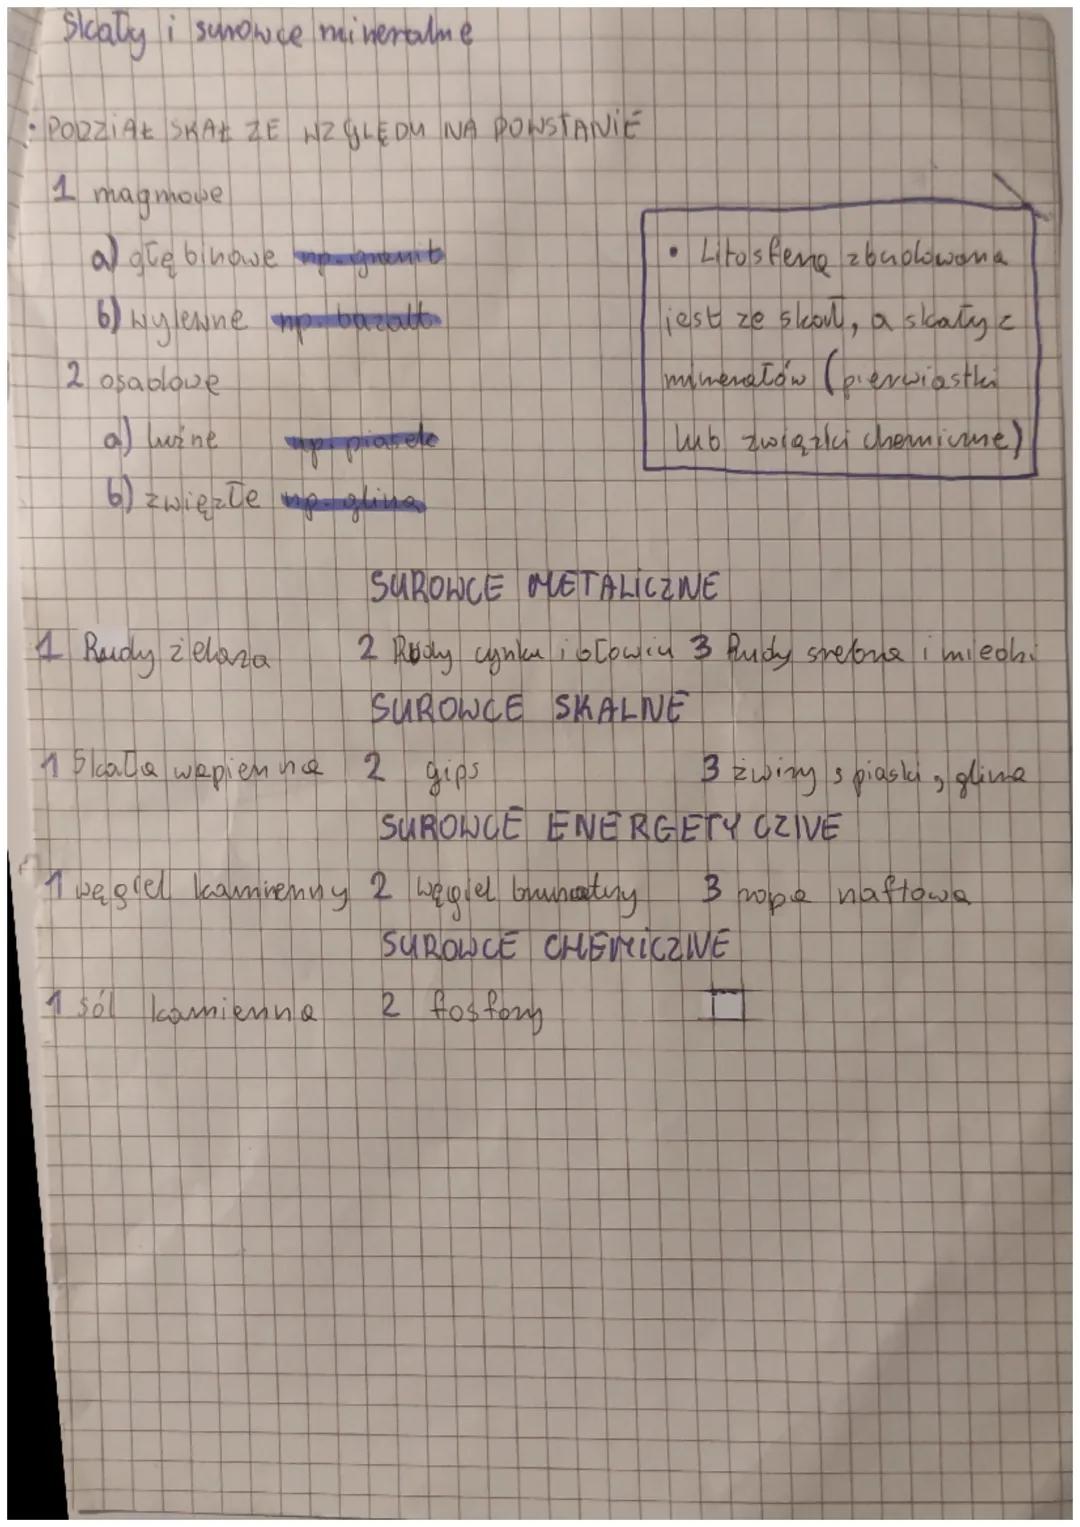 Skały i surowce mineralne
• PODZIAŁ SKAŁ ZE WZGLĘDU NA POWSTANIE
1 magmowe
a) głębinowe np. granit
b) wylewne np. bazalt
2 osadowe
a) luźne np. piasek
b) zwięzłe np. glina
• Litosfera zbudowana
jest ze skał, a skały z
minerałów (pierwiastki
lub związki chemiczne)
SUROWCE METALICZNE
1 Rudy żelaza 2 Rudy cynku i ołowiu 3 Rudy srebra i miedzi
SUROWCE SKALNE
1 Skała wapienna 2 gips 3 żwiry, piaski, glina
SUROWCE ENERGETYCZNE
1 węgiel kamienny 2 węgiel brunatny 3 ropa naftowa
SUROWCE CHEMICZNE
1 sól kamienna 2 fosfory